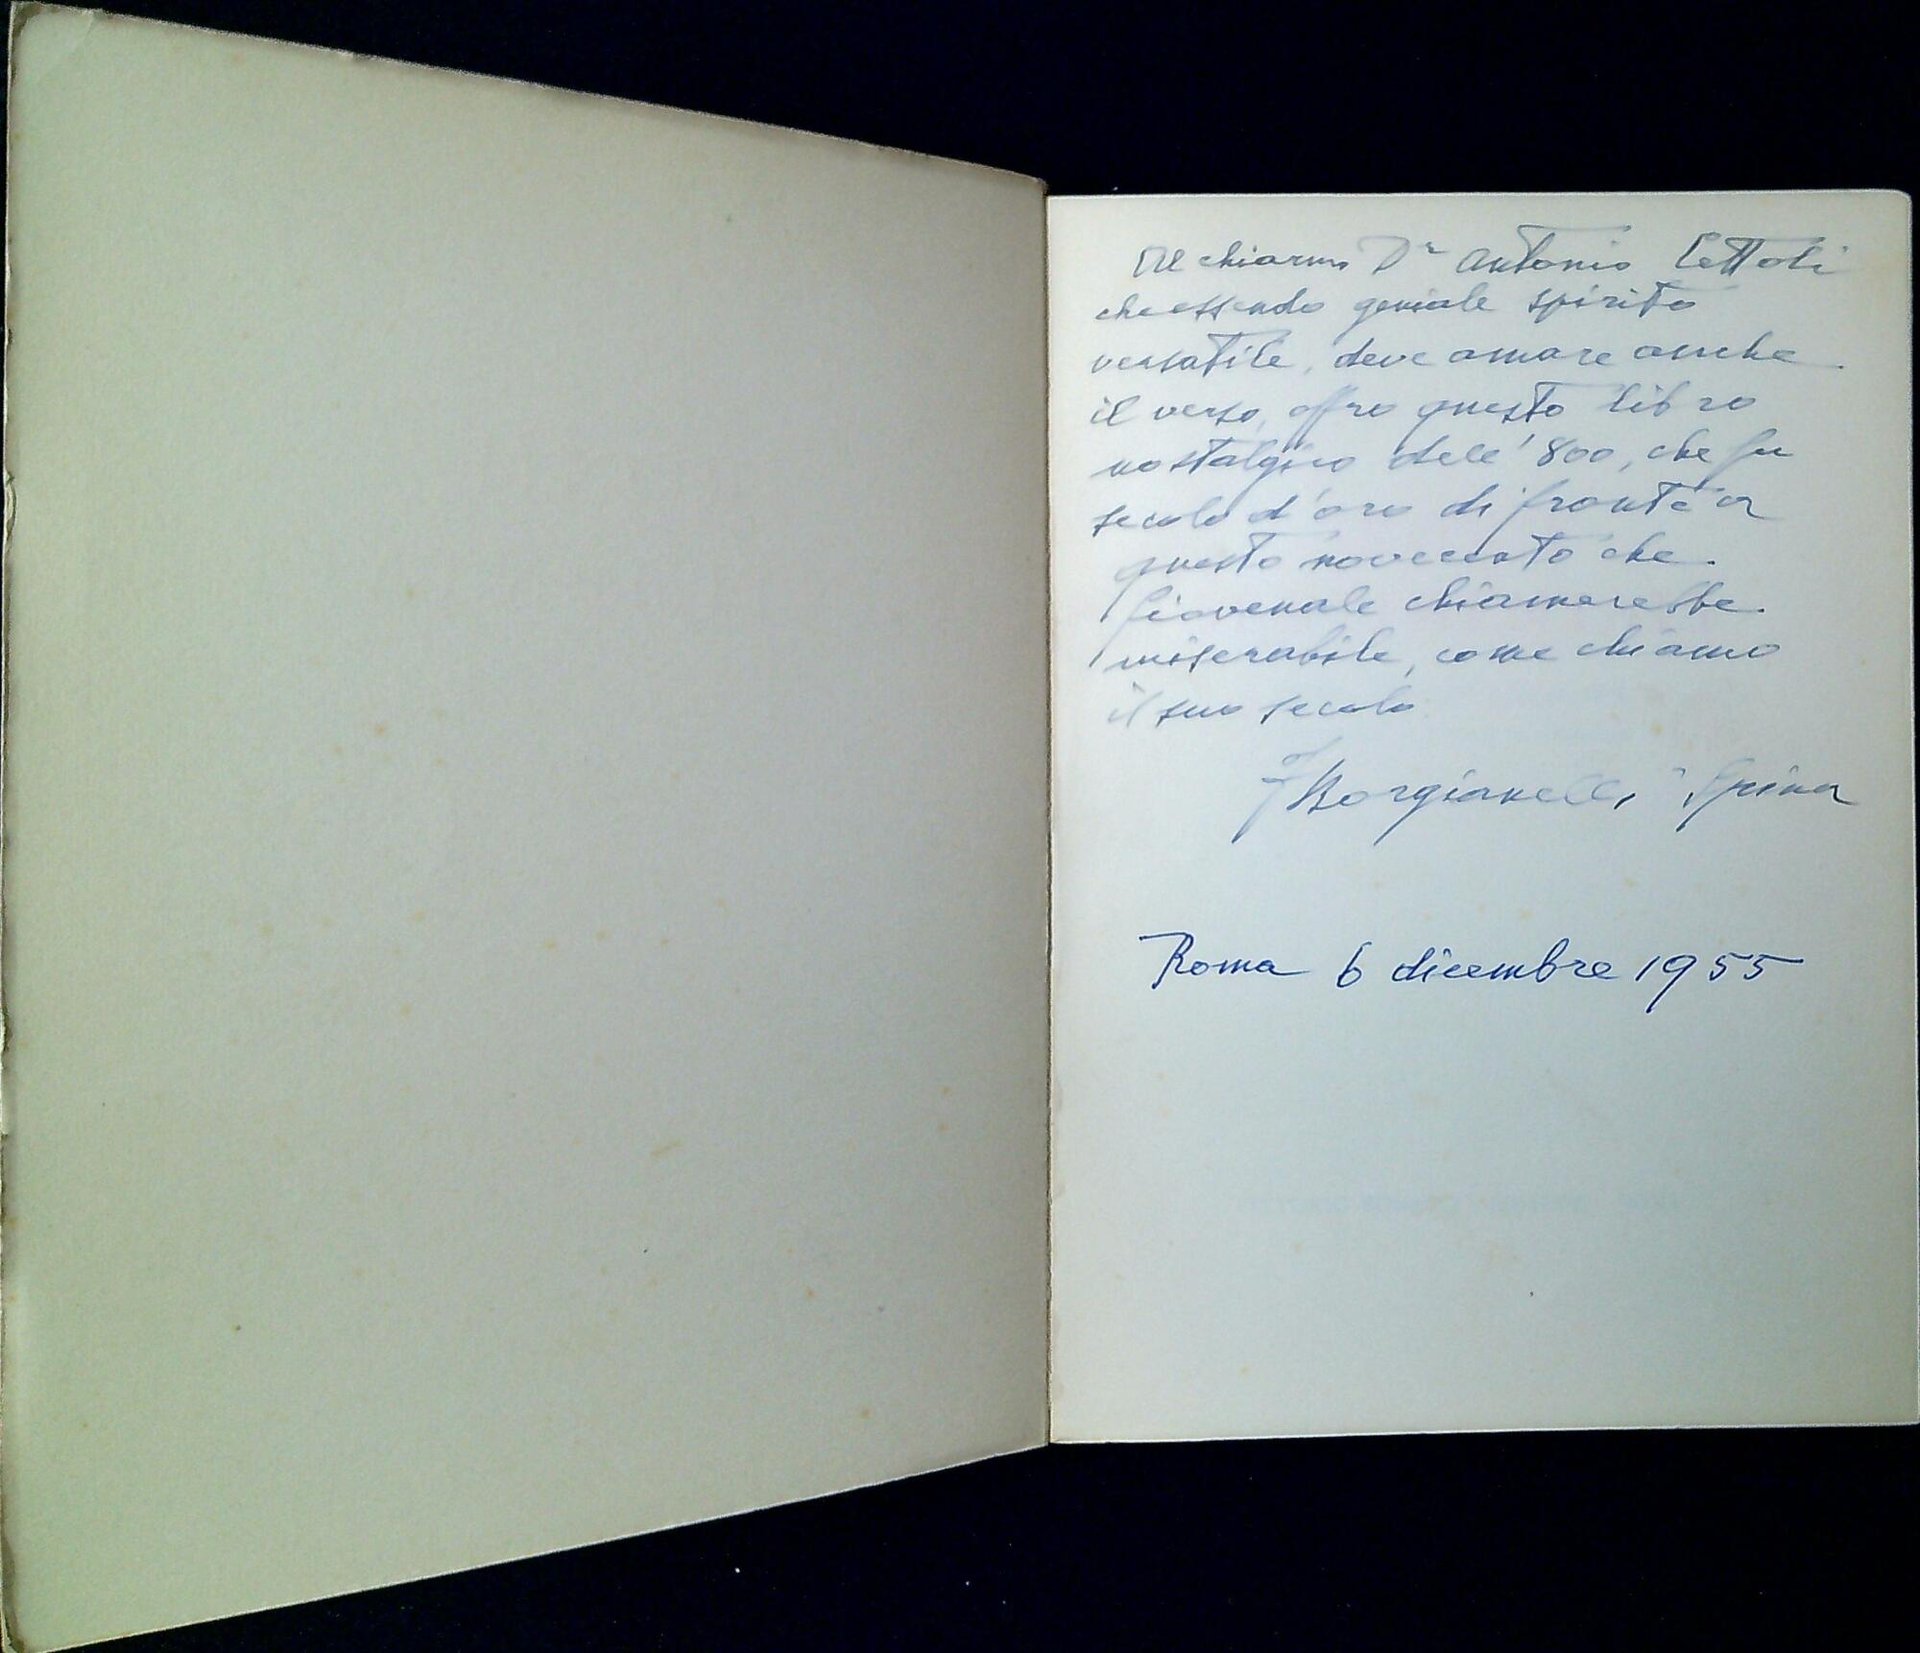 Al chiarmo Dr Antonio Lettoli
che essendo geniale spirito
versatile, deve amare anche
il verso, offro questo libro
nostalgico dell'800, che fu
secolo d'oro di fronte a
questo novecento che
Giovenale chiamerebbe
miserabile, come chiamò
il suo secolo
Borgianelli Spina
Roma 6 dicembre 1955